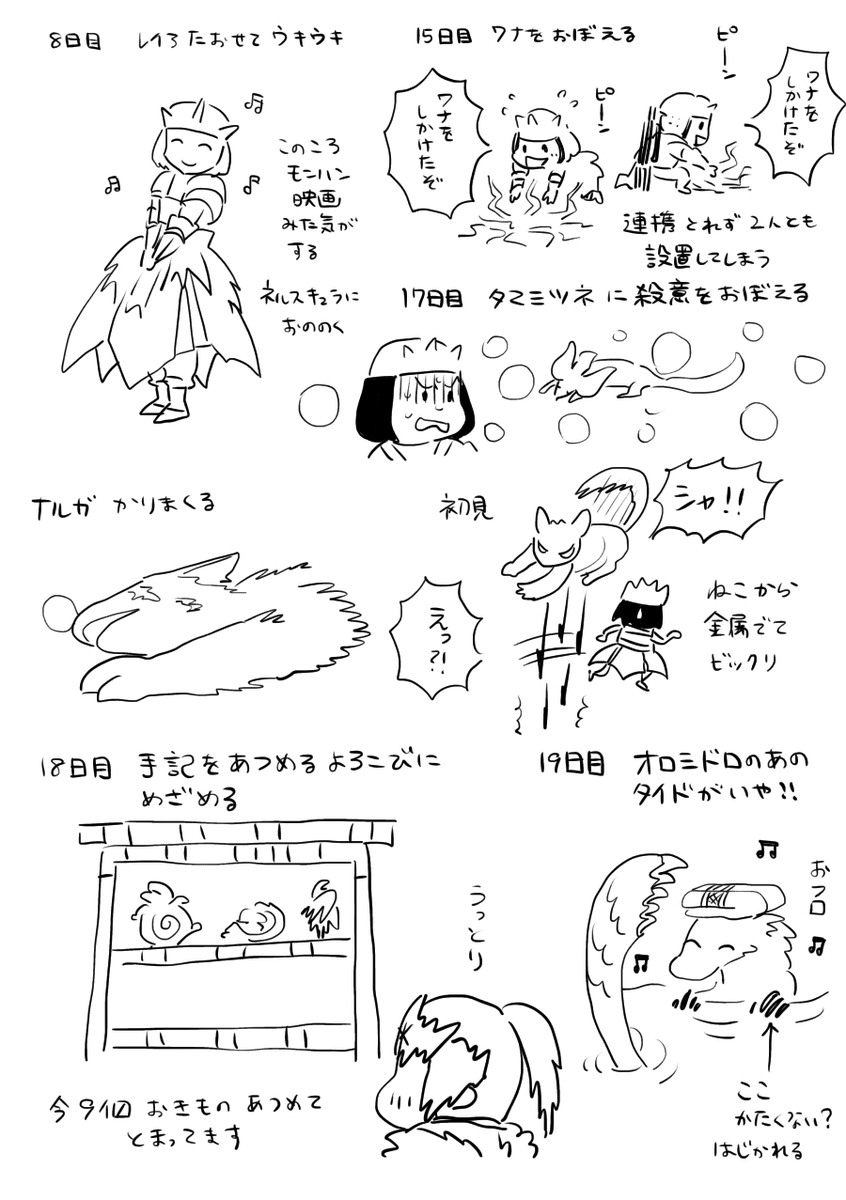 8日目 レイアたおせて ウキウキ
このころ
モンハン
映画
みた気が
する
ネルスキュラに
おののく
15日目 ワナを おぼえる
ワナを
しかけたぞ
ピーン
ピーン
ワナを
しかけたぞ
連携 とれず 2人とも
設置してしまう
17日目 タマミツネ に 殺意を おぼえる
ナルガ かりまくる
えっ?!
初見
シャ!!
ねこから
金属でて
ビックリ
18日目 手記を あつめる よろこびに
めざめる
うっとり
今9個 おきもの あつめて
とまってます
19日目 オロミドロのあの
タイドがいや!!
おフロ
ここ
かたくない?
はじかれる